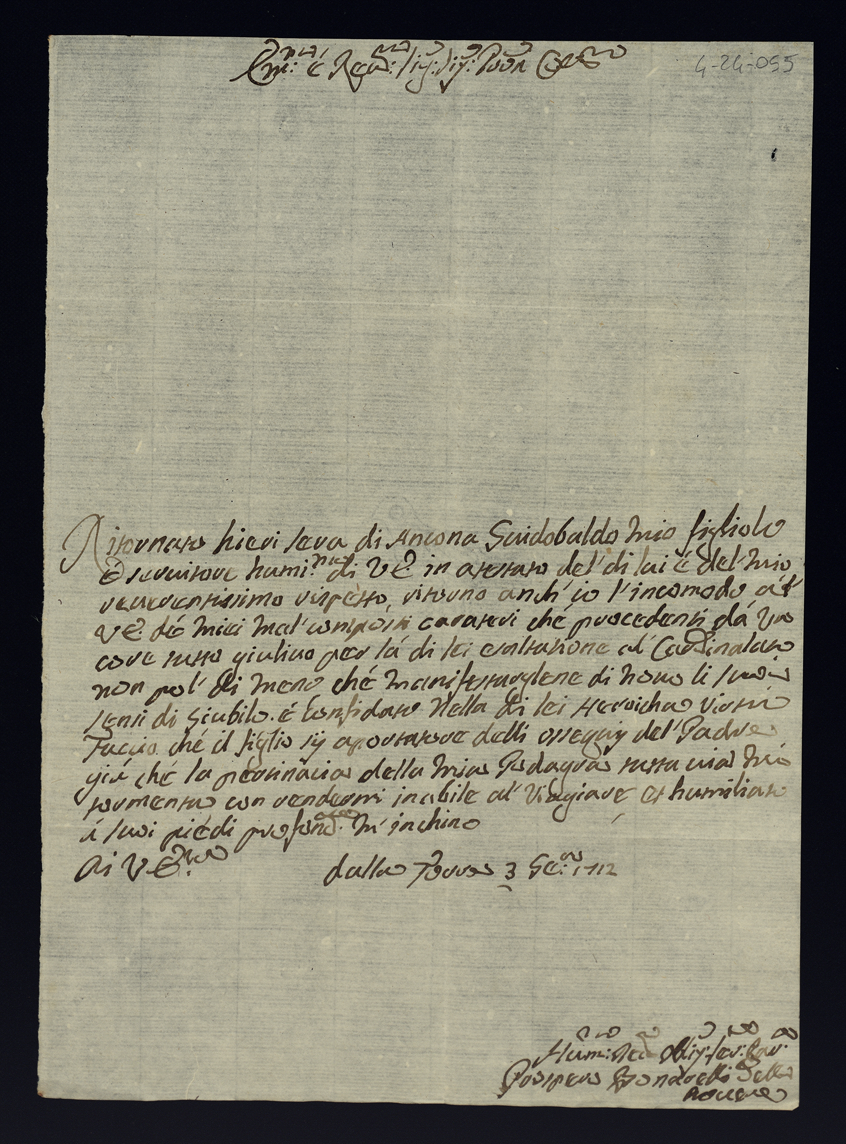 Em:mo é Reu:mo Sig: Sig: Pron Col:mo
4-24-055
Ritornato hieri sera di Ancona Guidobaldo mio figliolo
é servitore humi:mo di V E in atestato del' di lui é del' mio
reverentissimo rispetto, ritorno anch'io l'incomodo al'
V E dé miei mal' composti carateri ché procedenti dá un
core tutto giulivo per lá di lei esaltatione al' Cardinalato
non pol' di meno ché manifestarglene di novo li suoi
sensi di Giubilo. é Confidato nella di lei Heroicha virtú
Faccio ché il figlio sij aportatore delli ossequij del' Padre
giá ché la pertinacia della mia Podagra tutta via mi
tormenta con rendermi inabile al' viagiare et humiliato
á suoi piédi profond:te m'inchino
Di V E:
dalla Torre 3 Ge:ro 1712
Hum: Deu: Oblig: ser:
Prospero Bonarelli Della
Rovere